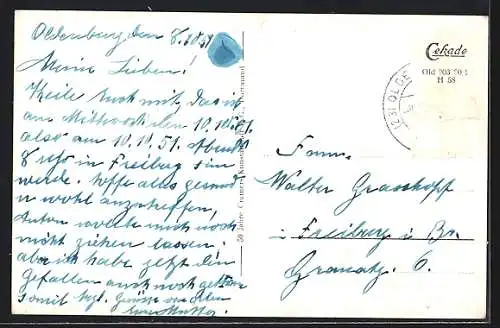 Oldenburg den 8.10.51
Meine Lieben!
Teile Euch mit, das ich
am Mittwoch den 10.10.51.
also am 10.10.51. Abends
Uhr in Freiburg sein
werde. hoffe alles gesund
u wohl anzutreffen,
Anton wollte mich noch
nicht ziehen lassen.
aber ich habe jetzt den
Gefallen auch noch getan
somit herzl. Grüsse von Allen
Eure Mutter.
50 Jahre Cramers Kunstanstalt Dortmund
Cekade
Old 203
H 58
OLDE
Fam.
Walter Grashopf
Freiburg i. Br.
Granatg. 6.